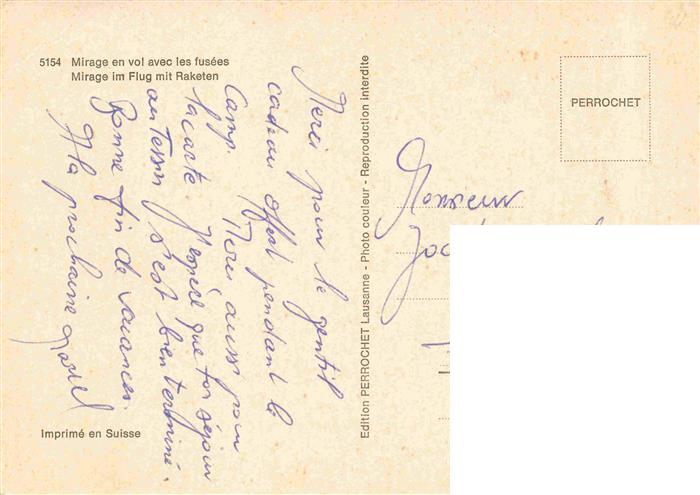 5154 Mirage en vol avec les fusées
Mirage im Flug mit Raketen
Merci pour le gentil
cadeau offert pendant le
camp. Merci aussi pour
la carte. J'espère que ton séjour
au Tessin s'est bien terminé.
Bonne fin de vacances.
A la prochaine
Imprimé en Suisse
Edition PERROCHET Lausanne - Photo couleur - Reproduction interdite
PERROCHET
Monsieur